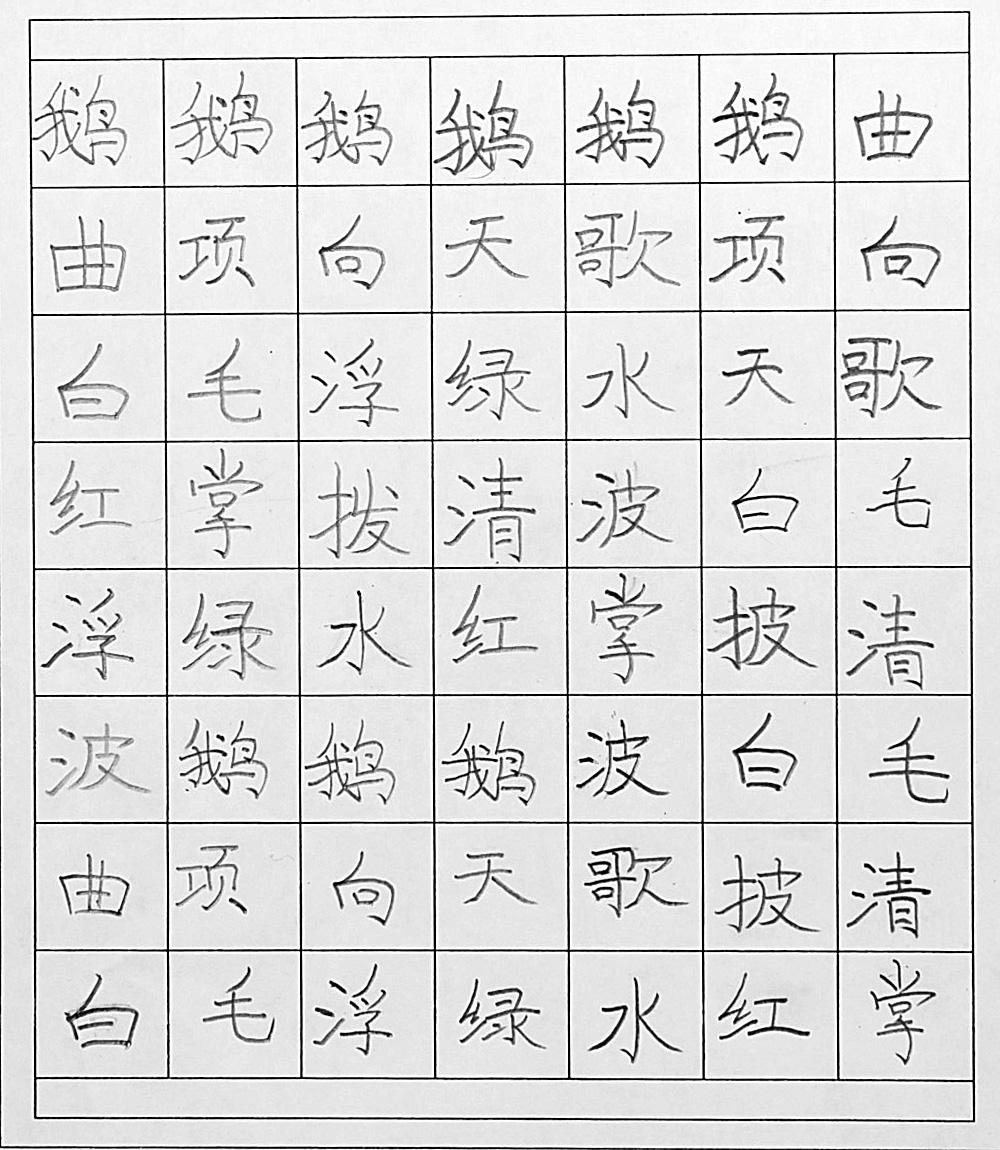 鹅鹅鹅鹅鹅鹅曲
曲项向天歌项向
白毛浮绿水天歌
红掌拨清波白毛
浮绿水红掌披清
波鹅鹅鹅波白毛
曲项向天歌披清
白毛浮绿水红掌